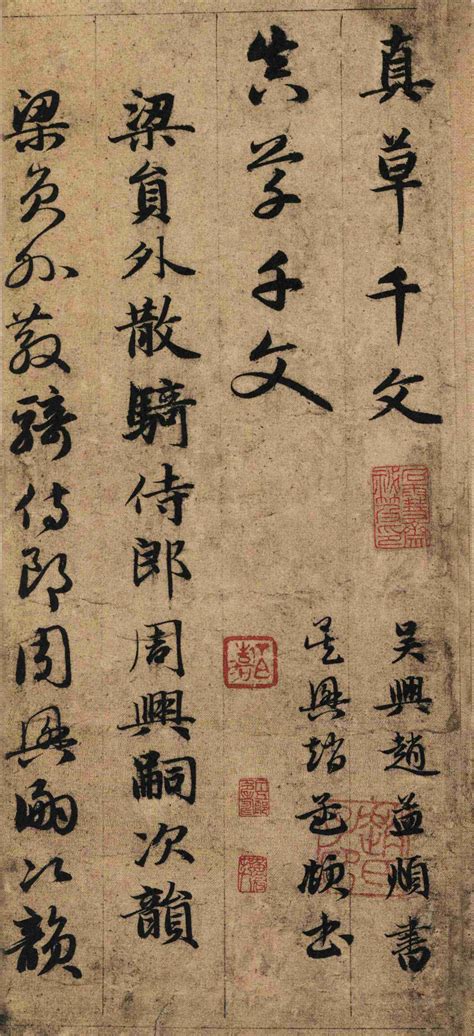 真草千文
吴興趙孟頫書
真草千文
吴興趙孟頫書
梁員外散騎侍郎周興嗣次韻
梁員外散騎侍郎周興嗣次韻